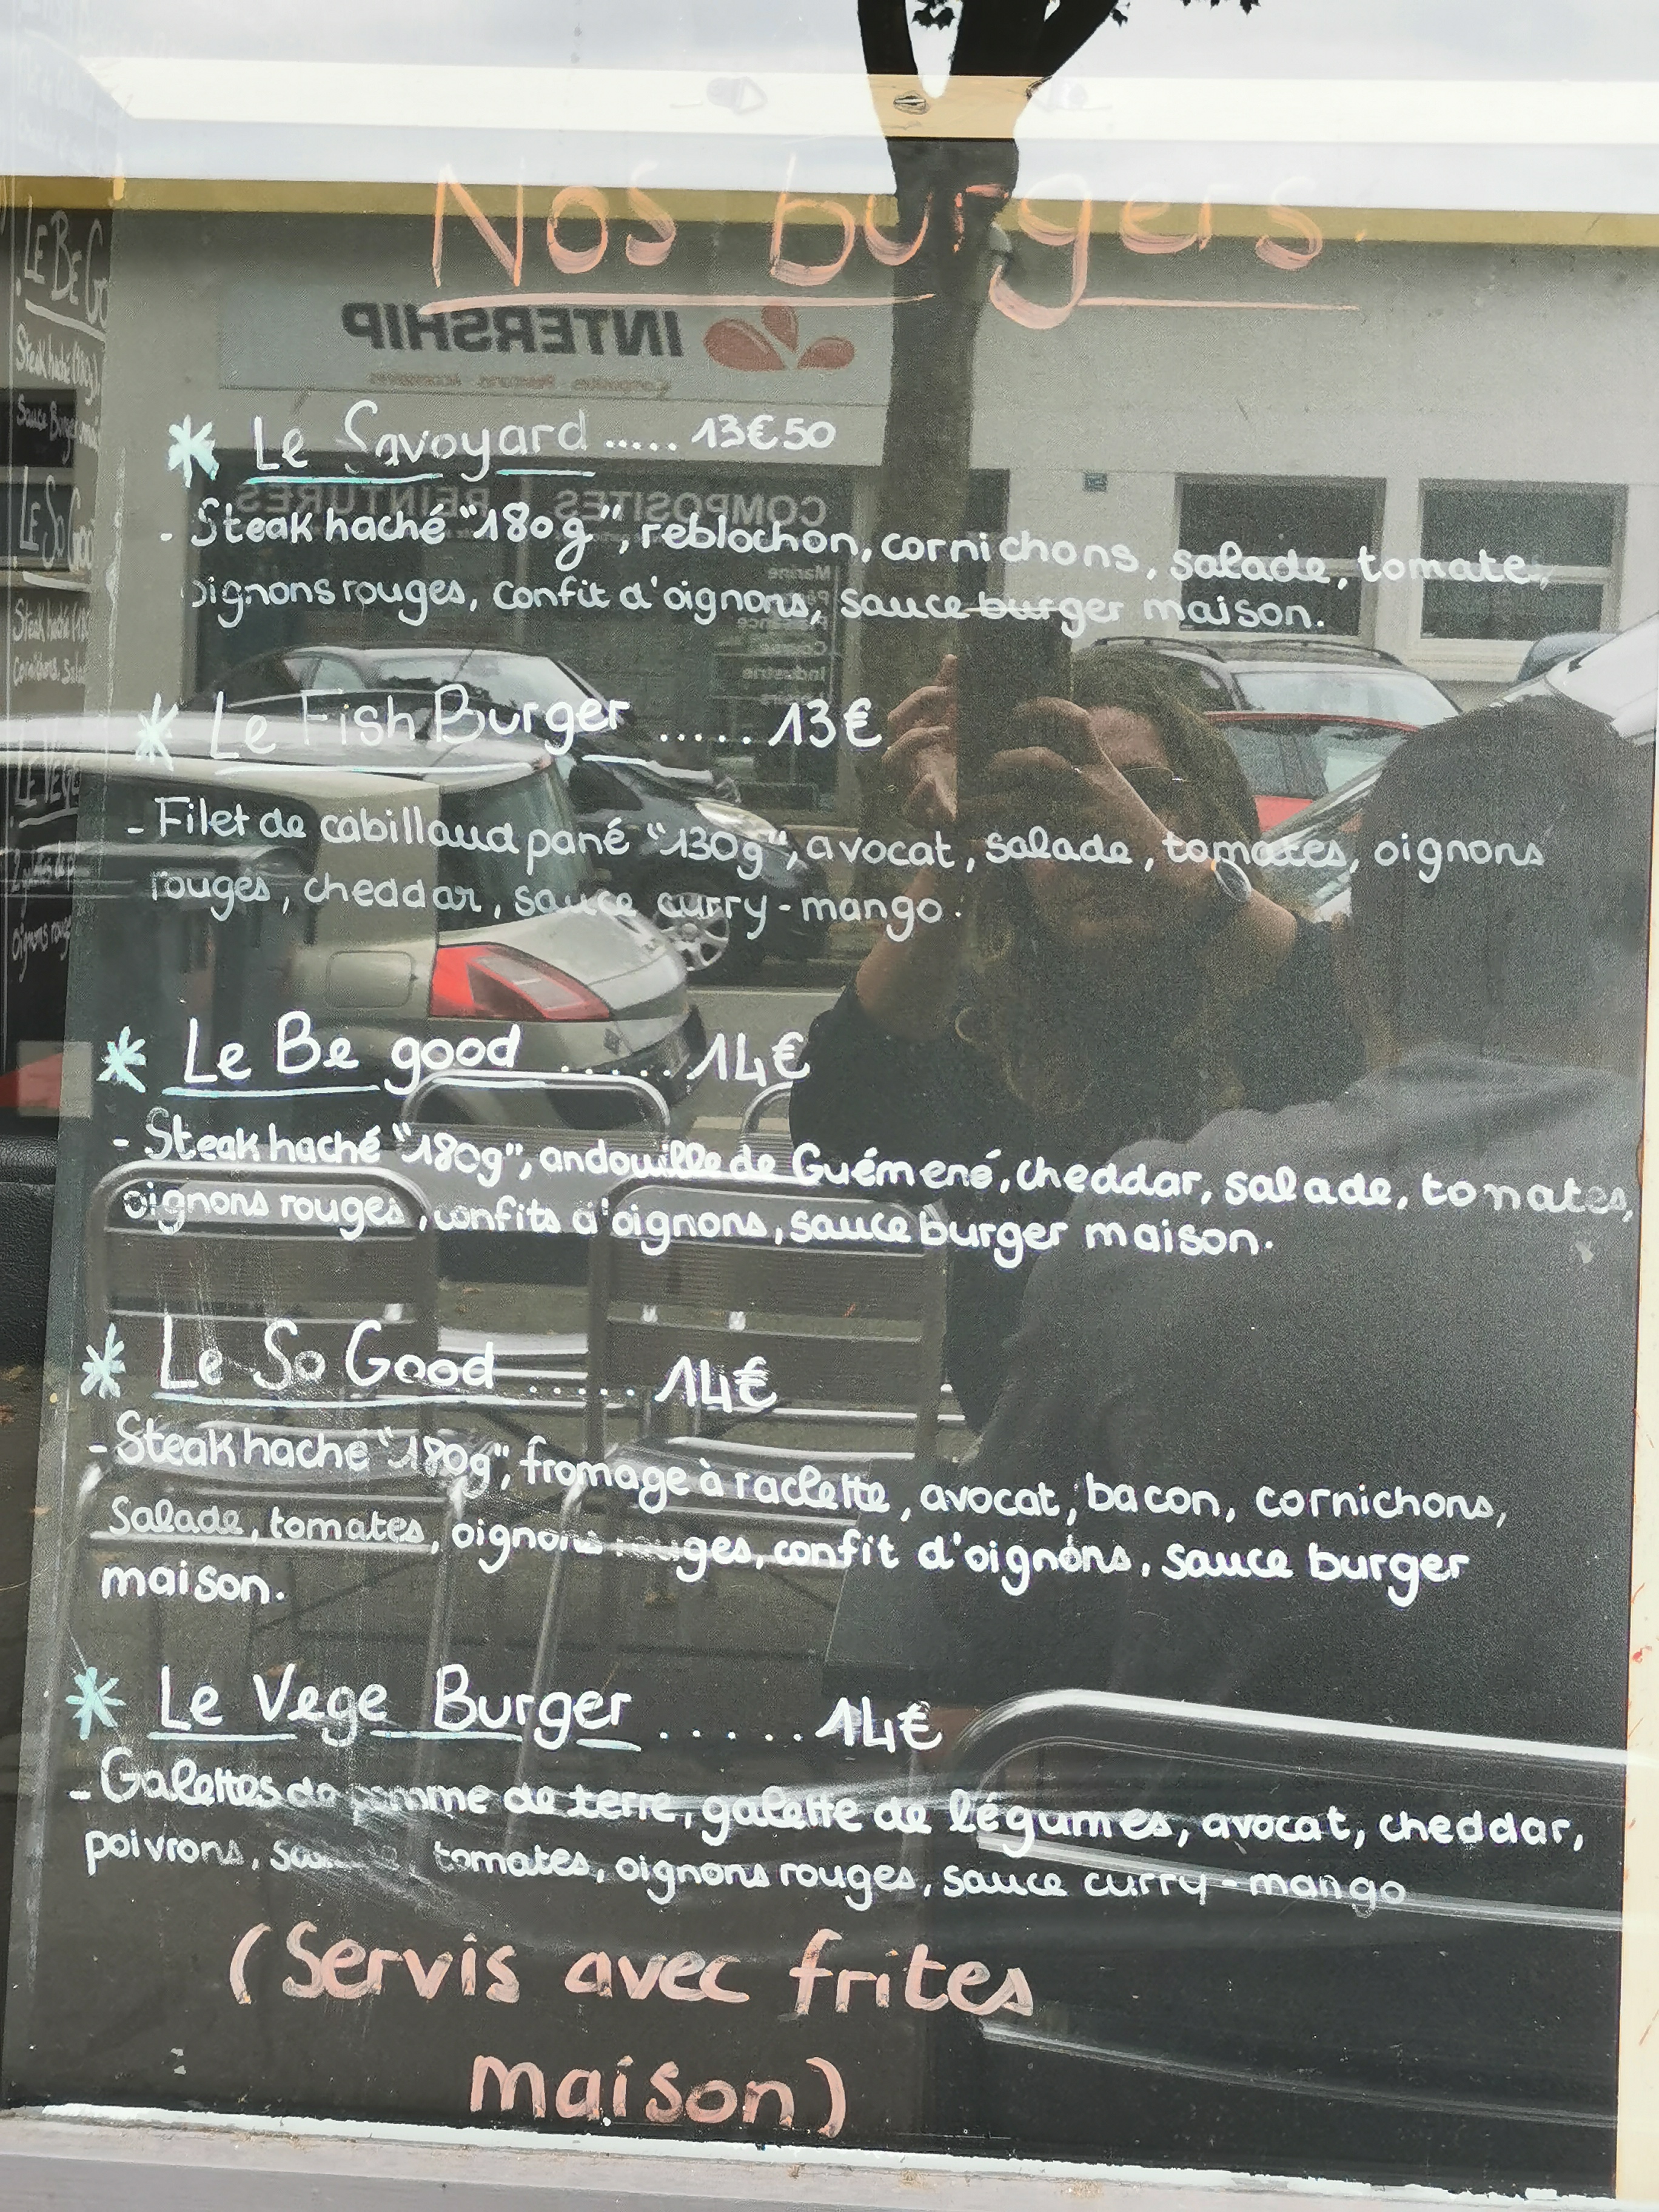 Nos burgers
INTERSHIP
COMPOSITES PEINTURES
Marine
Industrie
LE BE Go
Steak haché (180g),
Sauce Burger mai
LE SO Goo
Steak haché (18
Cornichons, Sala
LE VEGE
oignons rouge
* Le Savoyard ..... 13€50
- Steak haché "180g", reblochon, cornichons, salade, tomate,
oignons rouges, confit d'oignons, sauce burger maison.
* Le Fish Burger ..... 13€
- Filet de cabillaud pané "130g", avocat, salade, tomates, oignons
rouges, cheddar, sauce curry-mango.
* Le Be good ...... 14€
- Steak haché "180g", andouille de Guémené, cheddar, salade, tomates,
oignons rouges, confits d'oignons, sauce burger maison.
* Le So Good ..... 14€
- Steak haché "180g", fromage à raclette, avocat, bacon, cornichons,
Salade, tomates, oignons rouges, confit d'oignons, sauce burger
maison.
* Le Vege Burger ..... 14€
- Galettes de pomme de terre, galette de légumes, avocat, cheddar,
poivrons, tomates, oignons rouges, sauce curry-mango
(Servis avec frites
maison)